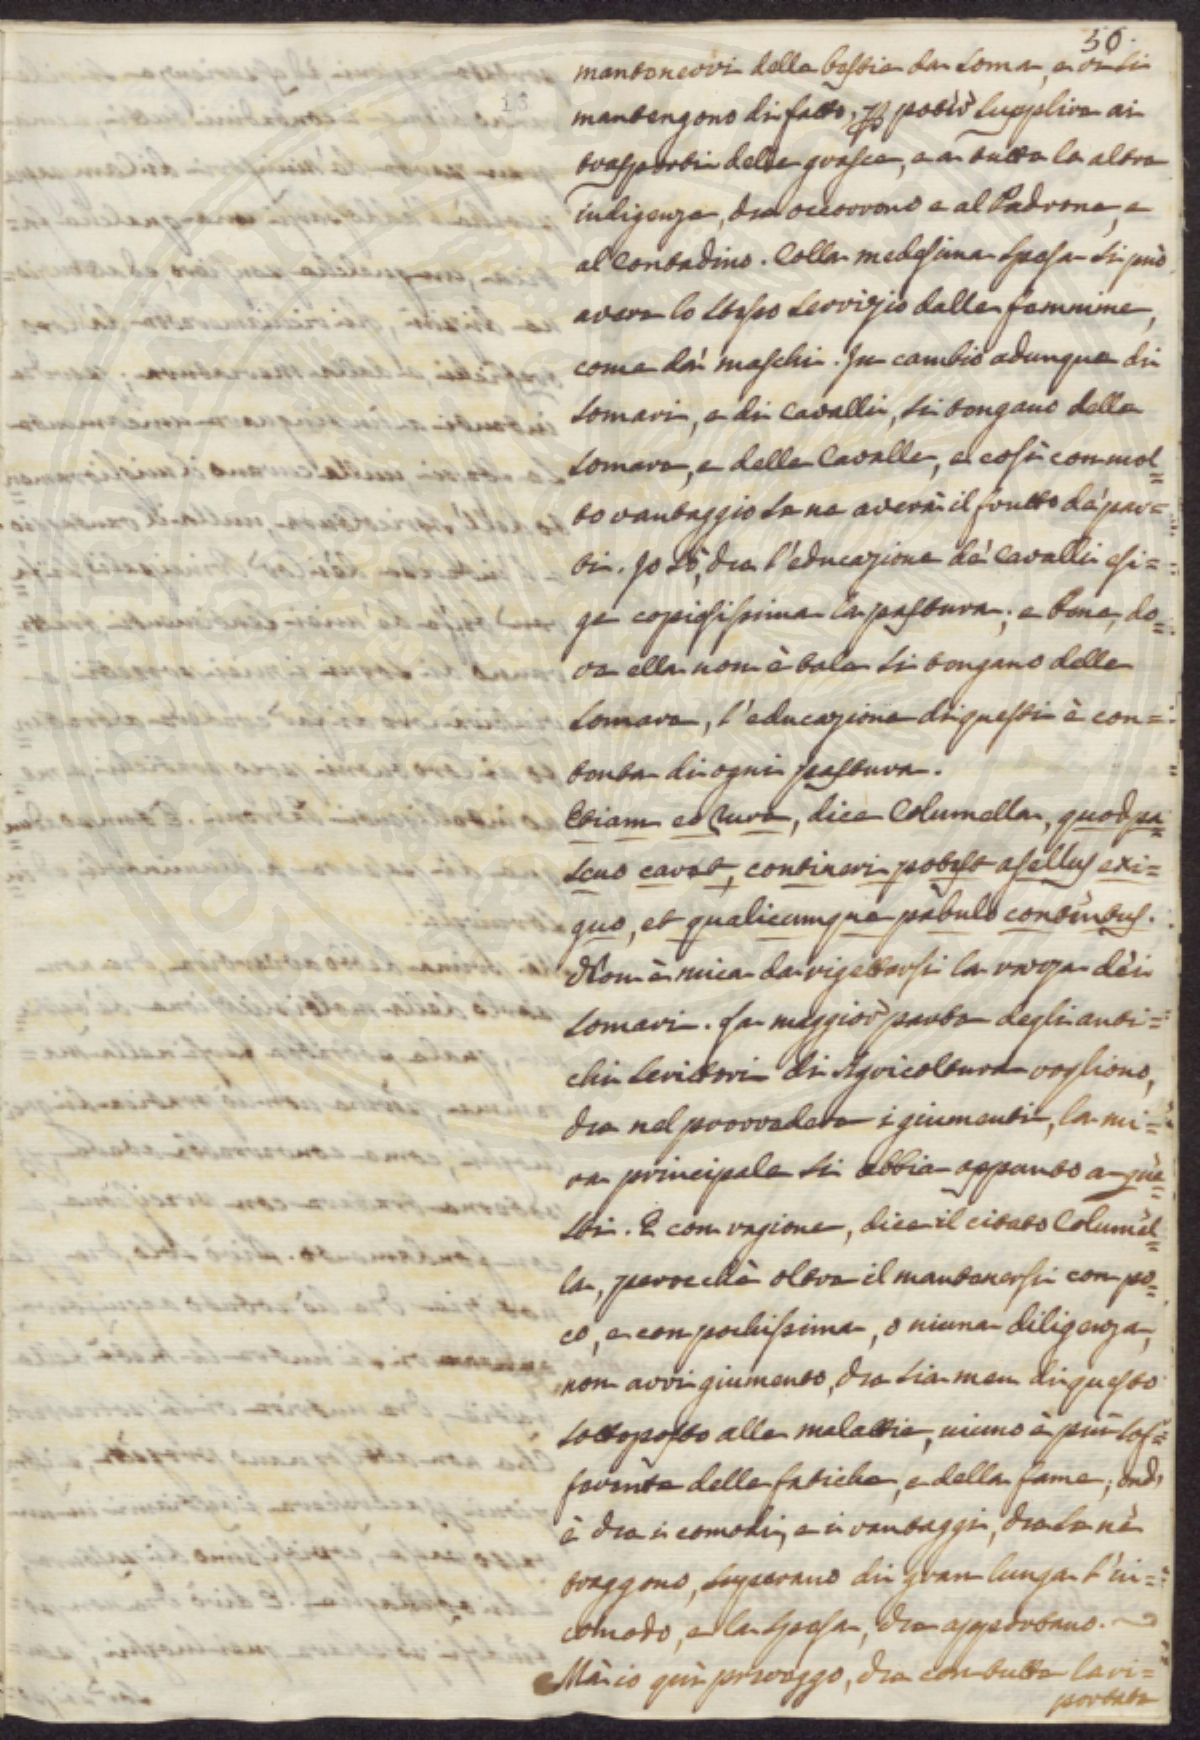 50.
mantenervi delle bestie da soma, e vi si
mantengono di fatto, p potèr supplire ai
trasporti delle grasce, e a tutte le altre
indigenze, che occorrono e al Padrone, e
al Contadino. Colla medesima spesa si può
avere lo stesso servizio dalle femmine,
come dà maschi. In cambio adunque di
somari, e di Cavalli, si tengano delle
somare, e delle Cavalle, e così con mol=
to vantaggio se ne averà il frutto dè par=
ti. Io sò, che l'educazione dè Cavalli esi=
ge copiosissima la pastura; e bene, do=
ve ella non è tale si tengano delle
somare, l'educazione di questi è con=
tenta di ogni pastura.
Etiam eo rure, dice Columella, quod pa=
scuo caret, contineri potest asellus exi=
guo, et qualicumque pabulo contèntus.
Non è mica da rigettarsi la razza dèi
somari. La maggiòr parte degli anti=
chi scrittori di Agricoltura vogliono,
che nel provvedere i giumenti, la mi=
ra principale si abbia appunto a què=
sti. E con ragione, dice il citato Columèl=
la, perocchè oltre il mantenersi con po=
co, e con pochissima, o niuna diligenza,
non avvi giumento, che sia men di questo
sottoposto alle malattie, niuno è più sof=
ferènte delle fatiche, e della fame; ond'
è che i comodi, e i vantaggi, che se nè
traggono, superano di gran lunga l'in=
comodo, e la spesa, che apportano.
Mà io quì preveggo, che con tutta la ri=
portata